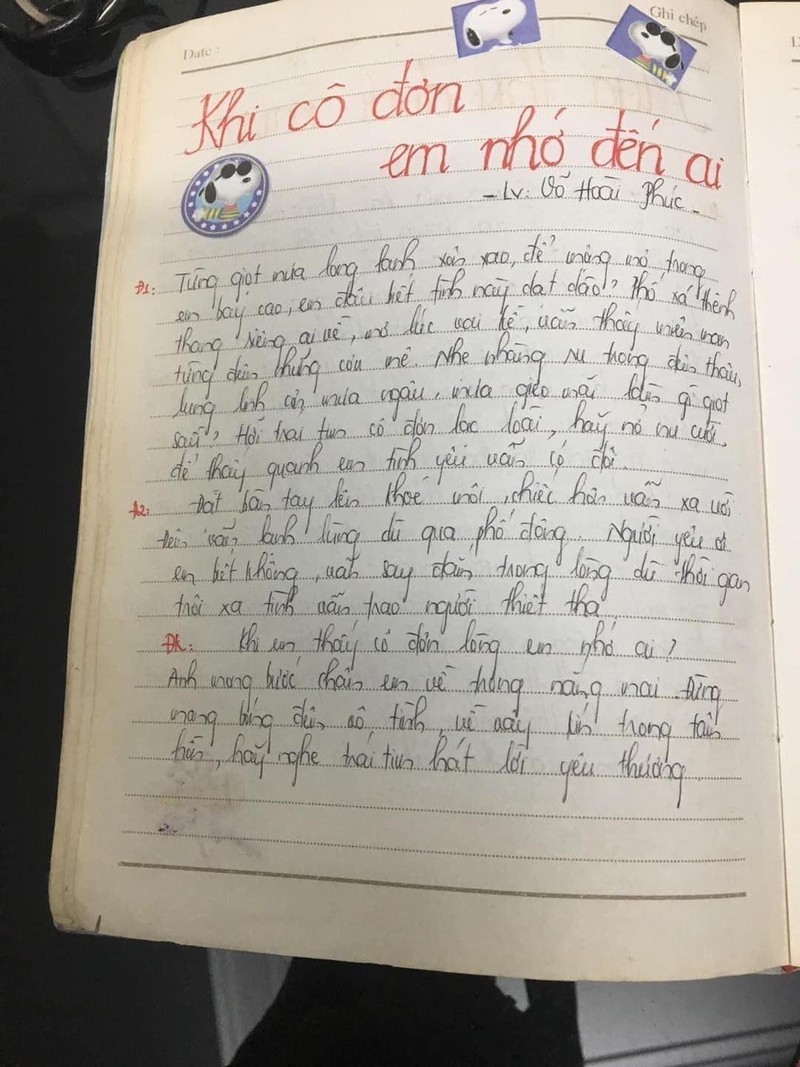 Date :
Ghi chép
Khi cô đơn
em nhớ đến ai
- Lv: Võ Hoài Phúc -
Đ1: Từng giọt mưa long lanh xôn xao, để mộng mơ trong
em bay cao, em đâu biết tình này dạt dào? Phố xá thênh
thang riêng ai về, mơ lúc vai kề, vẫn thấy miên man
từng đêm những cơn mê. Nhẹ nhàng ru trong đêm thâu,
lung linh cơn mưa ngâu, mưa gieo mãi lần gì giọt
sầu? Hỡi trái tim cô đơn lạc loài, hãy nở nụ cười,
để thấy quanh em tình yêu vẫn có đôi.
Đ2: Đặt bàn tay lên khoé môi, chiếc hôn vẫn xa vời
Đêm vẫn lạnh lùng dù qua phố đông. Người yêu ơi
em biết không, vẫn say đắm trong lòng dù thời gian
trôi xa tình vẫn trao người thiết tha
ĐK: Khi em thấy cô đơn lòng em nhớ ai?
Anh mong bước chân em về trong nắng mai. Đừng
mang bóng đêm vô tình, về vây kín trong tâm
hồn, hãy nghe trái tim hát lời yêu thương